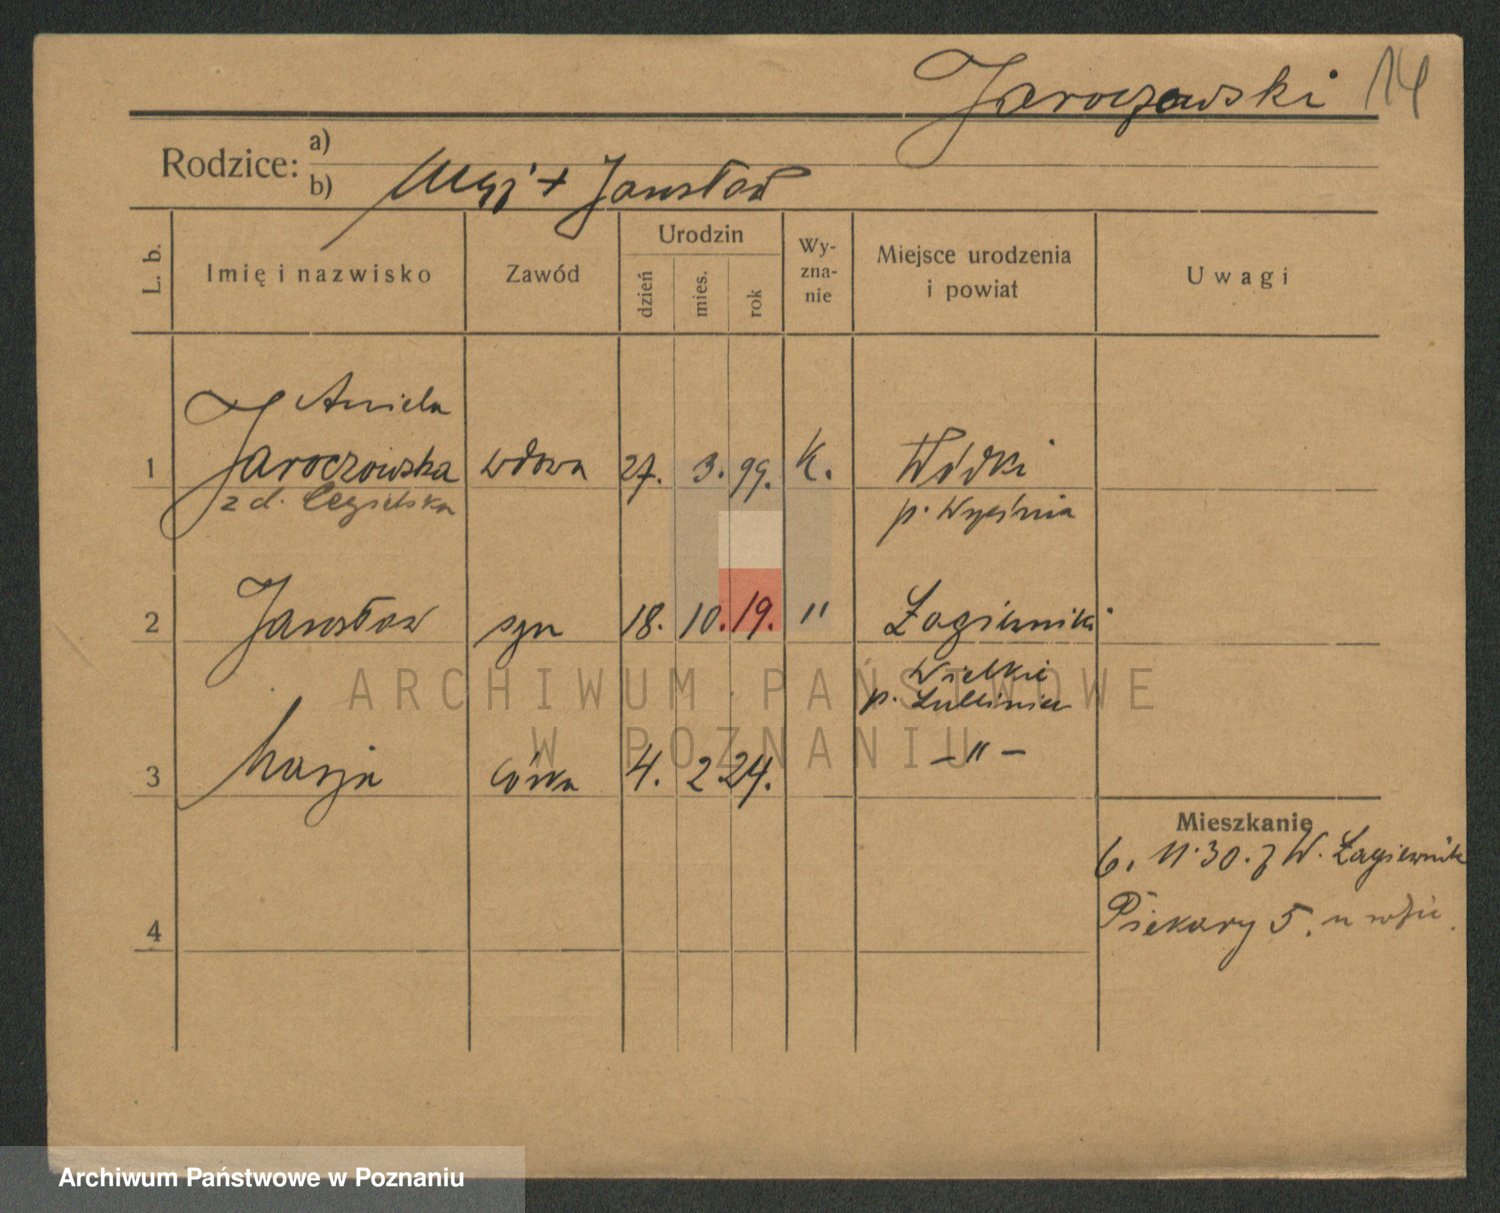 Jaroczewski 14
Rodzice: a)
b) Mąż + Jarosław
L. b.
Imię i nazwisko
Zawód
Urodzin
dzień
mies.
rok
Wy-
zna-
nie
Miejsce urodzenia
i powiat
Uwagi
Aniela
1 Jaroczewska wdowa 27. 3. 99. k. Wódki
z d. Cegielska p. Września
2 Jarosław syn 18. 10. 19. " Łagiewniki
Wielkie
p. Lubliniec
3 Marja córka 4. 2. 24. - " -
4
Mieszkanie
6. 11. 30. z W. Łagiewnik
Piekary 5.
ARCHIWUM PAŃSTWOWE
W POZNANIU
Archiwum Państwowe w Poznaniu